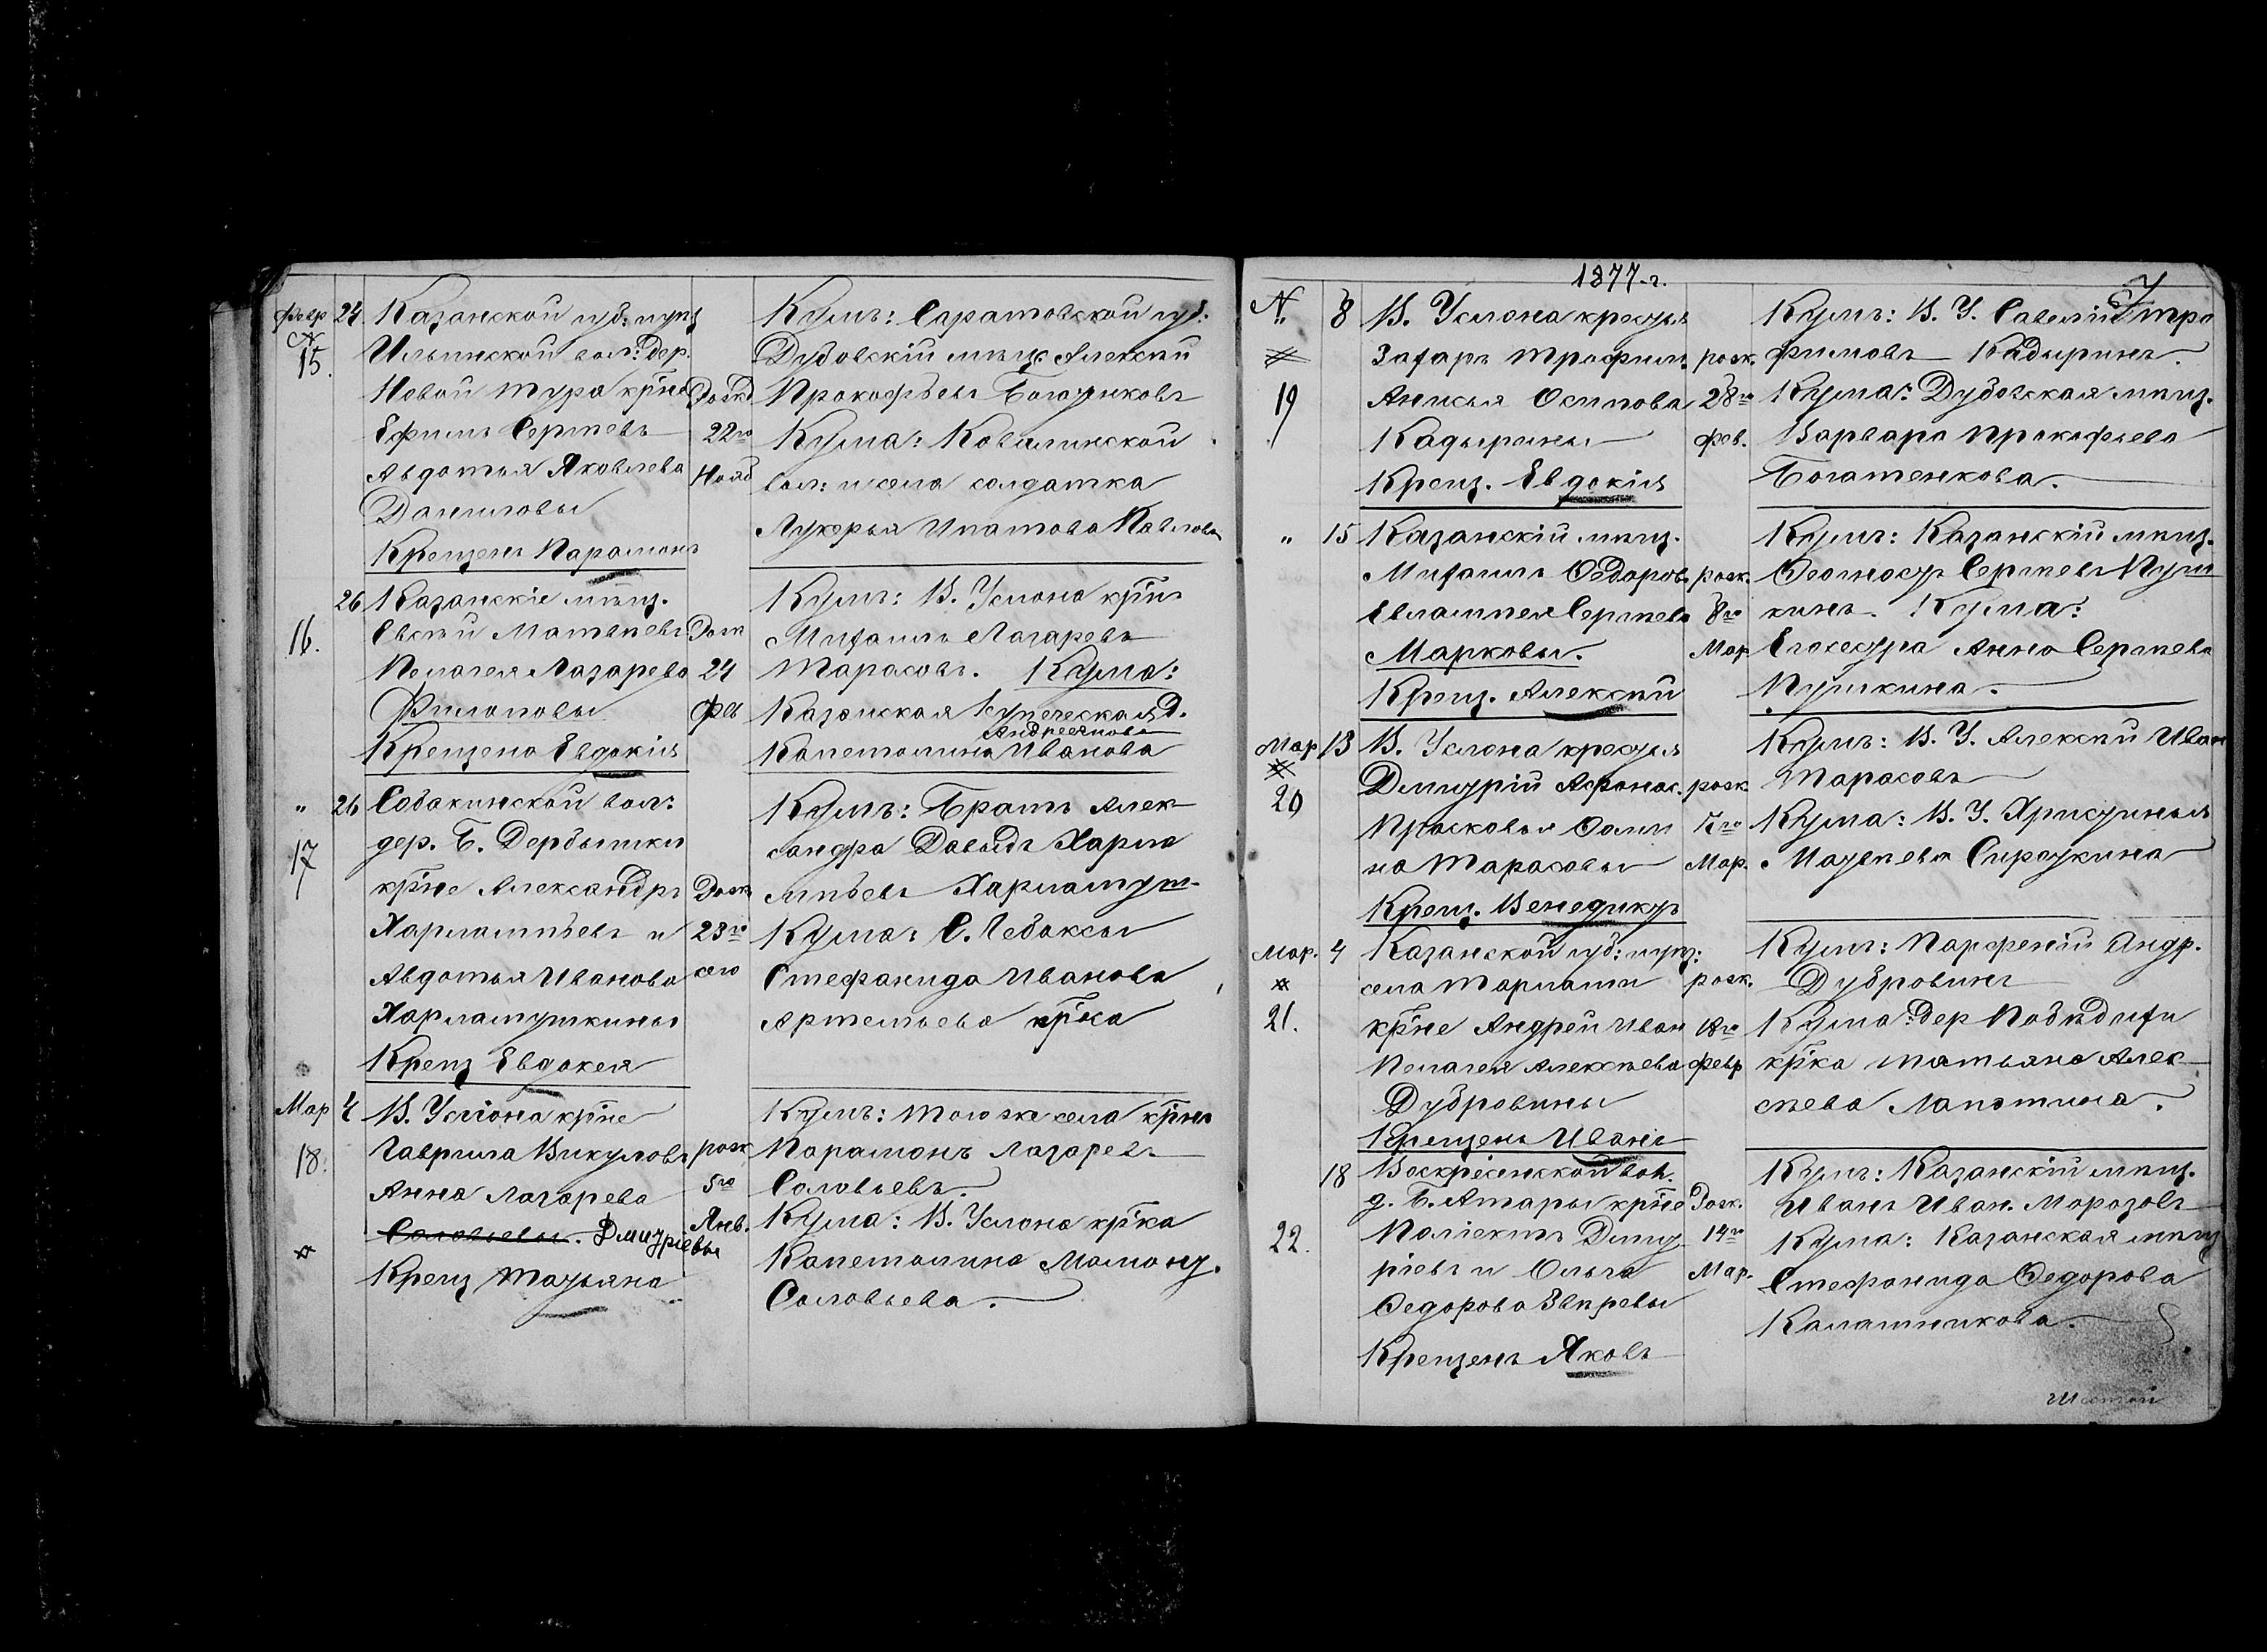 февр 24 Казанской губ: лупз
15. Ильинской вол: дер.
Новой тура кр̃не
Ефимъ Сергѣевъ
Авдотья Яковлева
Даниловы
Крещенъ Парамонъ
рожд
22го
Нояб
Кумъ: Саратовской губ:
Дубовскій мѣщ. Алексѣй
Прокофьевъ Богатиковъ
Кума: Ковалинской
вол: и села солдатка
Лукерья Ипатова Павлова
26 Казанскіе мѣщ.
16. Евсѣй Матвѣевъ
Пелагея Лазарева
Филоповы
Крещена Евдокія
рож
24
фев
Кумъ: В. Услона кр̃нъ
Михаилъ Лазаревъ
Тарасовъ. Кума:
Казанская купеческая д.
Андреянова
Капетолина Иванова
" 26 Собакинской вол:
17 дер. Б. Дербышки
кр̃не Александръ
Харлампьевъ и
Авдотья Иванова
Харлатушкины
Крещ Евдокея
рож
23го
сего
Кумъ: Братъ Алек
сандра Давыдъ Харла
мпьевъ Харлатуш-
Кума: С. Чебаксы
Стефанида Иванова
Артемьева кр̃ка
Мар 4 В. Услона кр̃не
18. Гаврила Викуловъ
Анна Лазарева
Соловьевы. Дмитріевы
Крещ Татьяна
рож
5го
Янв.
Кумъ: того же села кр̃нъ
Парамонъ Лазаревъ
Соловьевъ.
Кума: В. Услона кр̃ка
Капетолина Мамонт.
Соловьева.
1877-г.
7
№ 8 В. Услона крестья
19 Захаръ Трофим.
Анисья Осипова
Кадырины
Крещ. Евдокія
рож.
28го
фев.
Кумъ: В. У. Савелій Тро
фимовъ Кадыринъ.
Кума: Дубовская мѣщ.
Варвара Прокофьева
Богатенкова.
" 15 Казанскій мѣщ.
Михаилъ Ѳедоров.
Евлампея Сергѣева
Марковы.
Крещ. Алексѣй
рож.
8го
Мар
Кумъ: Казанскій мѣщ.
Ѳеогностъ Сергѣевъ Пуш
кинъ. Кума:
Его сестра Анна Сергѣева
Пушкина.
Мар 13 В. Услона крестья
20 Дмитрій Афонас.
Прасковья Фоми
на Тарасовы
Крещ. Венедиктъ
рож.
7го
Мар.
Кумъ: В. У. Алексѣй Иван
Тарасовъ
Кума: В. У. Христинья
Матвѣева Сироткина
Мар. 4 Казанской губ: лупз:
21. села Тарлаши
кр̃не Андрей Иван
Пелагея Алексѣева
Дубровины
Крещенъ Иванъ
рож.
18го
февр
Кумъ: Парфеній Андр.
Дубровинъ
Кума: дер
кр̃ка Татьяна Алек
сѣева Лапотина.
18 Воскресенской вол.
22. д. Б. Атары кр̃не
Поліектъ Дмит
ріевъ и Ольга
Ѳедорова Звѣревы
Крещенъ Яковъ
рож.
14го
Мар.
Кумъ: Казанскій мѣщ.
Иванъ Иван. Морозовъ
Кума: Казанская мѣщ
Стефанида Ѳедорова
Калашникова.